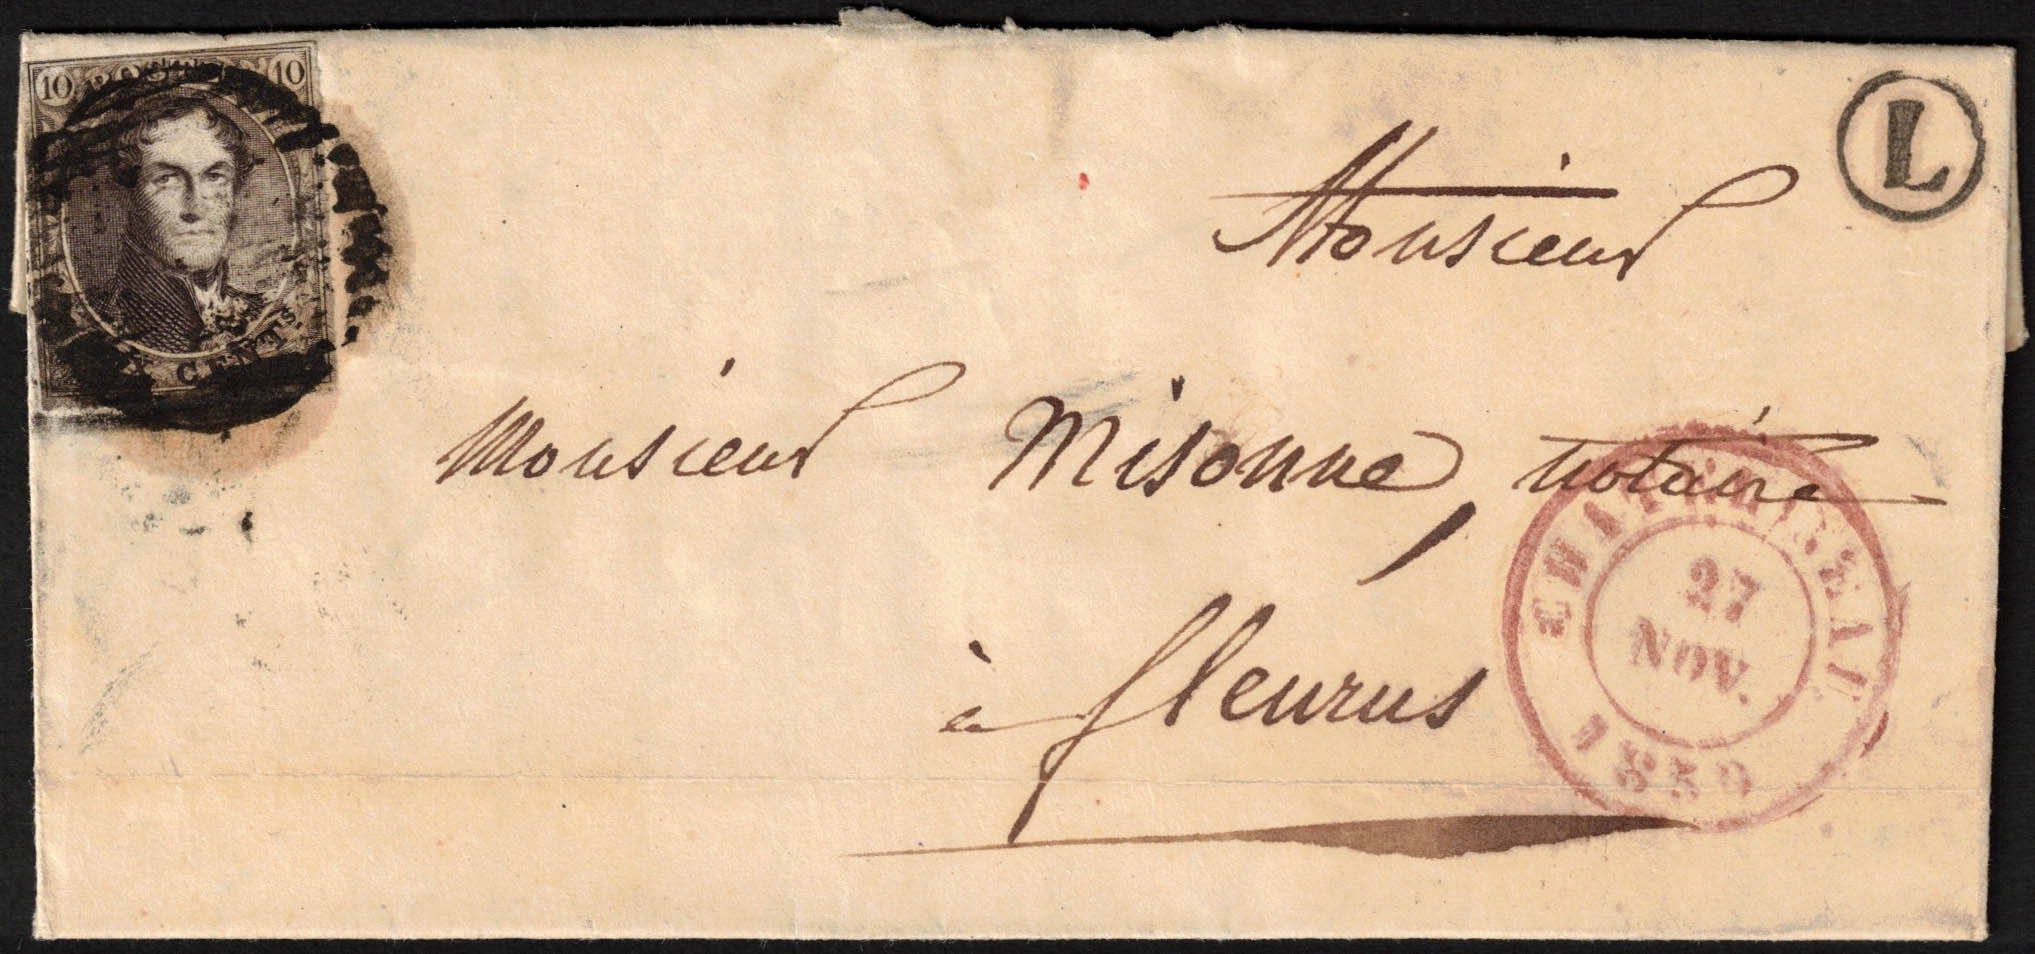 10 POSTES 10
X CENTS.
L
Monsieur
Monsieur Misonne, notaire
à fleurus
CHATELINEAU
27
NOV.
1859